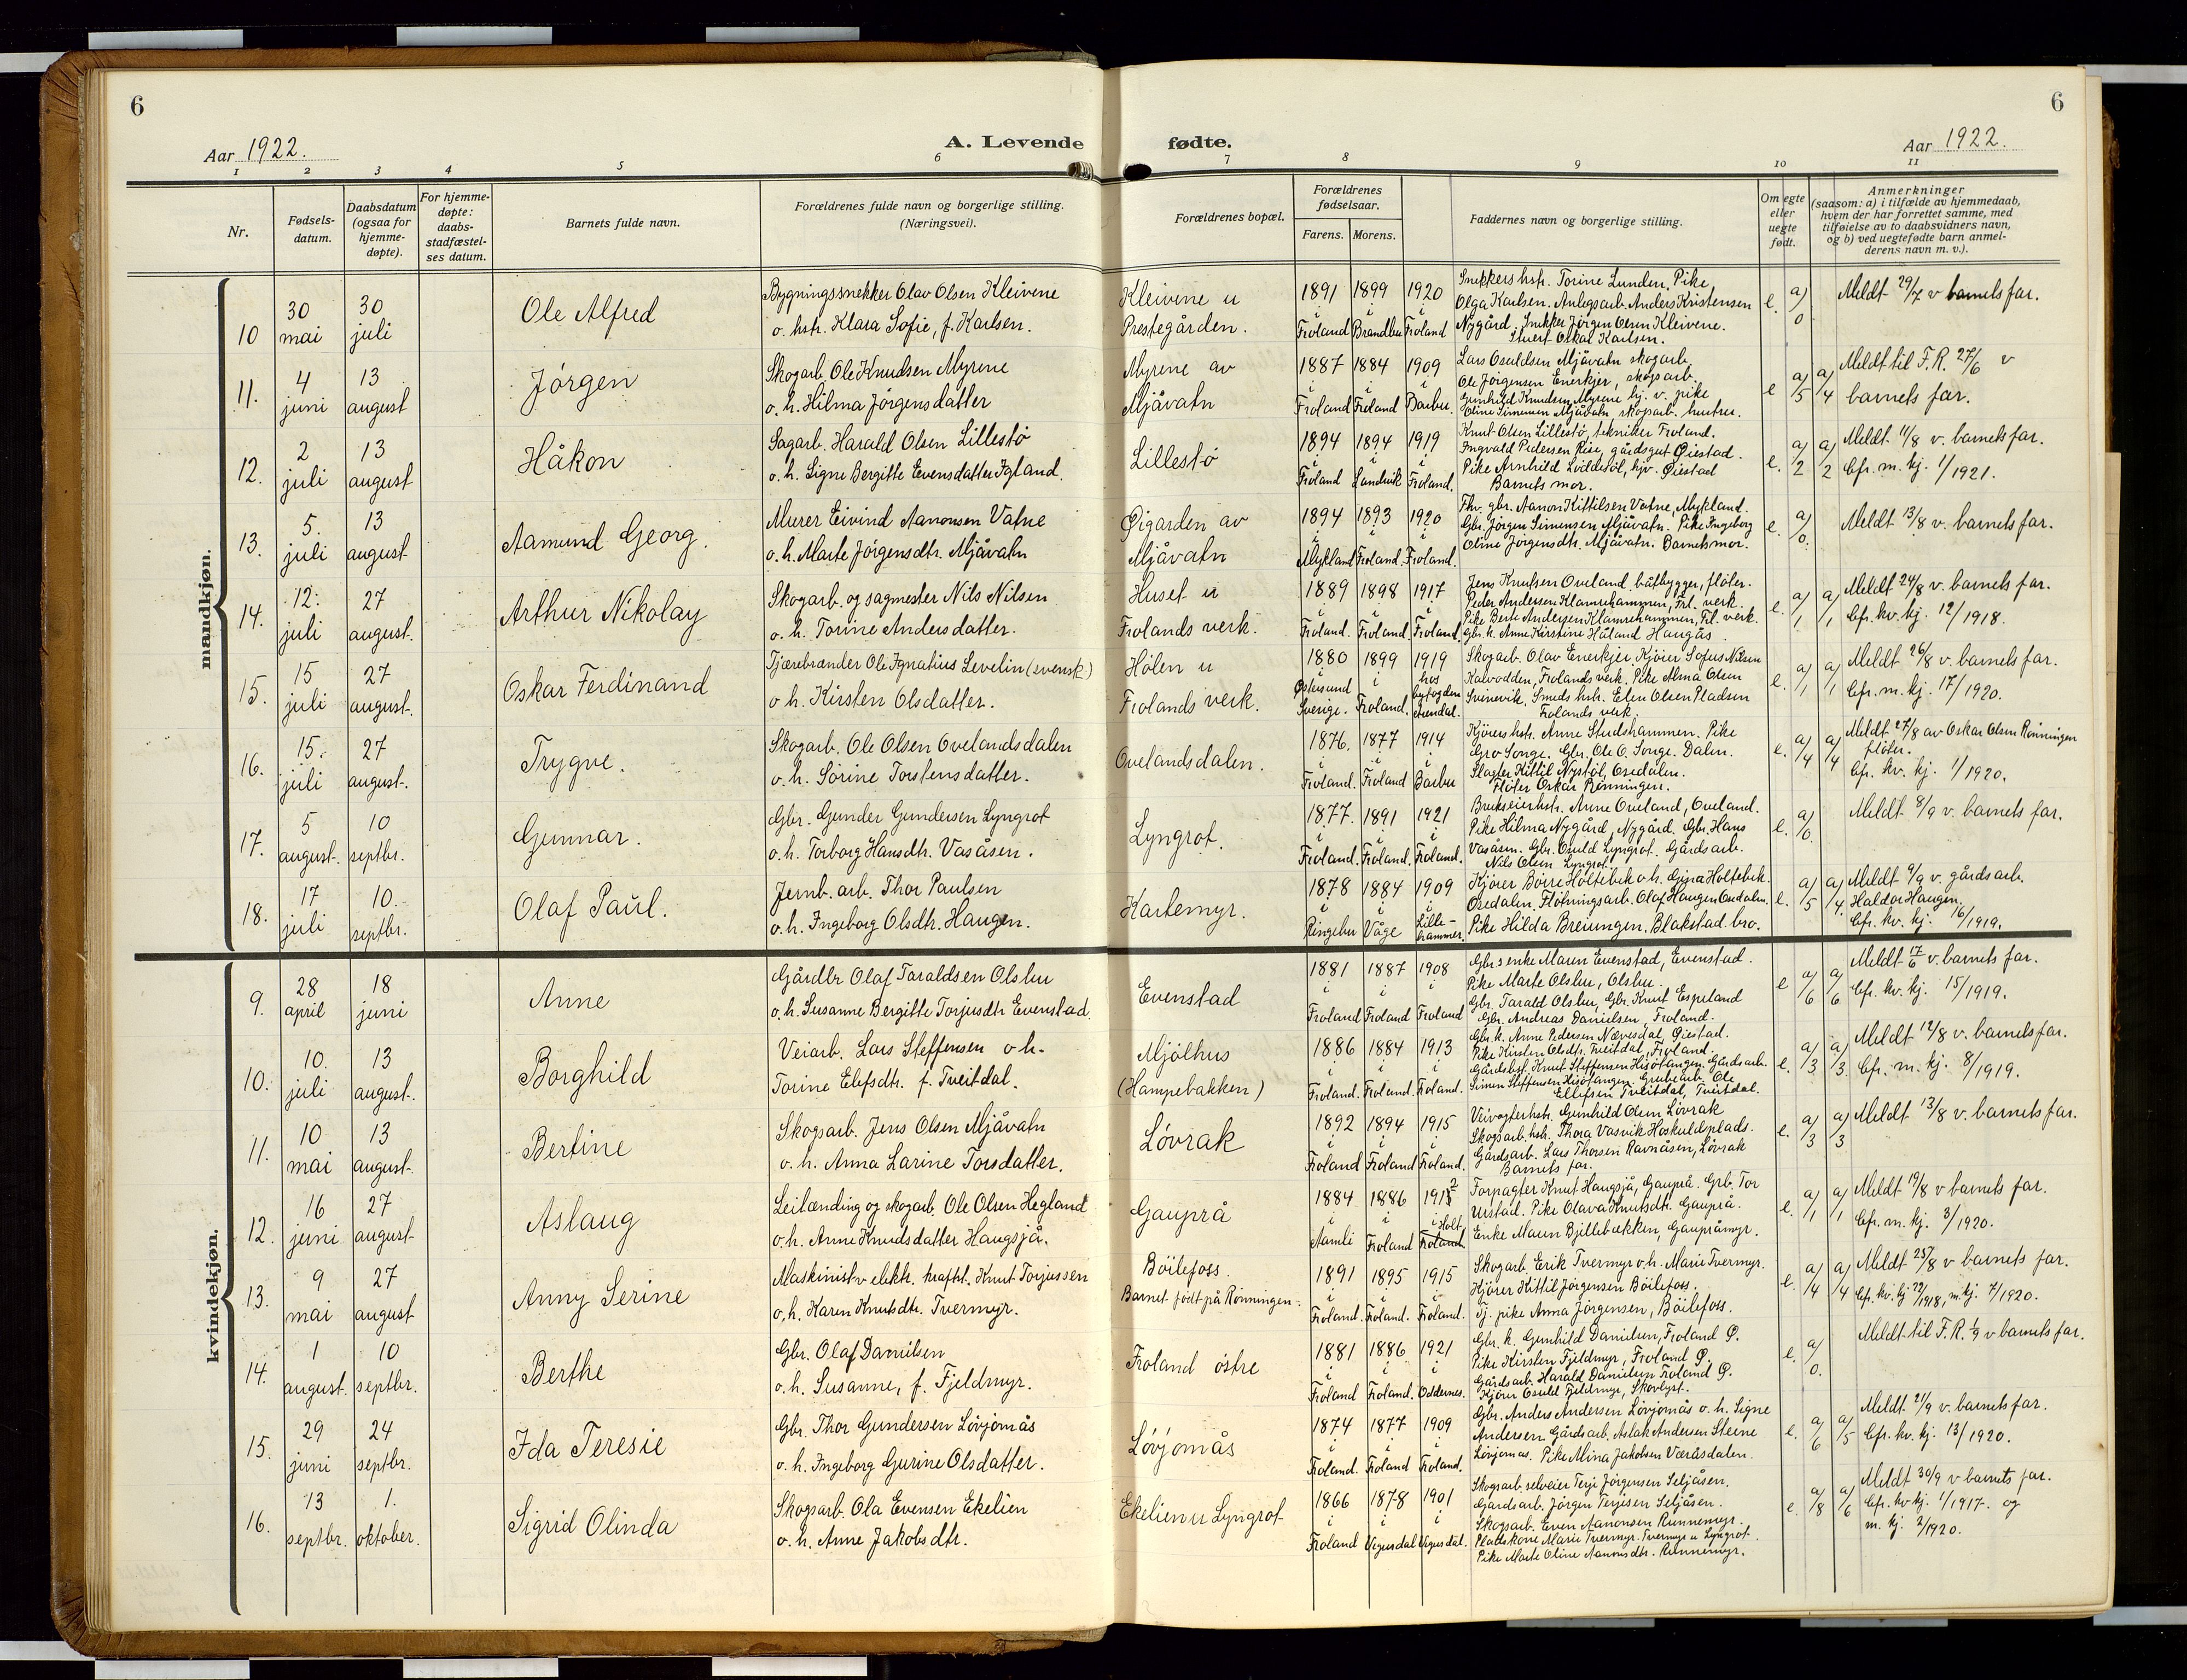 6
6
Aar 1922.
A. Levende fødte.
Aar 1922.
1 2 3 4 5 6 7 8 9 10 11
Nr.
Fødsels-
datum.
Daabsdatum
(ogsaa for
hjemme-
døpte).
For hjemme-
døpte:
daabs-
stadfæstel-
ses datum.
Barnets fulde navn.
Forældrenes fulde navn og borgerlige stilling.
(Næringsvei).
Forældrenes bopæl.
Forældrenes
fødselsaar.
Farens. Morens.
Faddernes navn og borgerlige stilling.
Om egte
eller
uegte
født.
Anmerkninger
(saasom: a) i tilfælde av hjemmedaab,
hvem der har forrettet samme, med
tilføielse av to daabsvidners navn,
og b) ved uegtefødte barn anmel-
derens navn m. v.).
mandkjøn.
10 30 mai 30 juli Ole Alfred
Bygningssnekker Olav Olsen Kleivene
o. hstr. Klara Sofie, f. Karlsen.
Kleivene u
Prestegården.
1891 1899 1920
i i i
Froland Brandbu Froland
Snekkers hstr. Torine Lunden. Pike
Olga Karlsen. Anlegsarb. Anders Kristensen
Nygård. Snekker Jörgen Olsen Kleivene.
Stuert Oskar Karlsen.
e. a/0
Meldt 29/7 v barnets far.
11. 4 juni 13 august Jörgen
Skogarb. Ole Knudsen Myrene
o. h. Hilma Jörgensdatter
Myrene av
Mjåvatn
1887 1884 1909
i i i
Froland Froland Barbu.
Lars Osuldsen Mjåvatn skogarb.
Ole Jörgensen Enerkjer, skogsarb.
Gunhild Knudsen Myrene hj. v. pike
Oline Simensen Mjåvatn skogsarb. hustru.
e a/5 a/4
Meldt til F.R. 27/6 v
barnets far.
12. 2 juli 13 august Håkon
Sagarb. Harald Olsen Lillestö
o. h. Signe Bergitte Evensdatter Igland.
Lillestö
1894 1894 1919
i i i
Froland Landvik Froland.
Knut Olsen Lillestö, tekniker Froland.
Ingvald Pedersen Rise, gårdsgut Öiestad.
Pike Arnhild Lvildesöl, hjv. Öiestad
Barnets mor.
e. a/2 a/2
Meldt 11/8 v. barnets far.
Cfr. m. kj. 1/1921.
13. 5. juli 13 august Aamund Georg.
Murer Eivind Aanonsen Vatne
o. h. Marte Jörgensdtr. Mjåvatn
Öigarden av
Mjåvatn
1894 1893 1920
i i i
Mykland Froland. Froland.
Fhv. gbr. Aanon Kittilsen Vatne, Mykland.
Gbr. Jörgen Simensen Mjåvatn. Pike Ingeborg
Oline Jörgensdtr. Mjåvatn. Barnets mor.
e. a/0.
Meldt 13/8 v. barnets far.
14. 12. juli 27 august. Arthur Nikolay
Skogarb. og sagmester Nils Nilsen
o. h. Torine Andersdatter.
Huset u
Frolands verk.
1889 1898 1917
i i i
Froland. Froland. Froland.
Jens Knutsen Oveland båtbygger, flöter.
Peder Andersen Klamrehammen, Frl. verk.
Pike Berte Andersen Klamrehammen, Frl. verk.
Gbr. h. Anne Kirstine Håland Haugås.
e. a/1 a/1
Meldt 24/8 v. barnets far.
Cfr. kv. kj. 12/1918.
15. 15 juli 27 august. Oskar Ferdinand
Tjærebrænder Ole Ignatius Levelin (svensk)
o h. Kirsten Olsdatter.
Hölen u
Frolands verk.
1880 1899 1919
i hos
Östersund byfogden
Sverige. Froland. Arendal.
Skogarb. Olav Enerkjer. Kjöier Sofus Nilsen
Kalvodden, Frolands verk. Pike Alma Olsen
Svinevik, Smeds hstr. Elen Olsen Pladsen
Frolands verk.
e. a/1 a/1
Meldt 26/8 v. barnets far.
Cfr. m. kj. 17/1920.
16. 15. juli 27 august. Trygve.
Skogarb. Ole Olsen Ovelandsdalen
o. h. Sörine Torstensdatter.
Ovelandsdalen.
1876. 1877 1914
i i i
Froland. Froland Barbu
Kjöiers hstr. Anne Studshammen. Pike
Gro Songe. Gbr. Ole O. Songe. Dalen.
Slagter Kittil Nystöl, Osedalen.
Flöter Oskar Rönningen.
e. a/4 a/4
Meldt 27/8 av Oskar Olsen Rönningen
flöter.
Cfr. kv. kj. 1/1920.
17. 5 august. 10 septbr. Gunnar.
Gbr. Gunder Gundersen Lyngrot
o. h. Torborg Hansdtr. Vasåsen.
Lyngrot.
1877. 1891 1921
i i i
Froland. Froland. Froland.
Brukseierhstr. Anne Oveland, Oveland.
Pike Hilma Nygård, Nygård. Gbr. Hans
Vasåsen. Gbr. Osuld Lyngrot. Gårdsarb.
Nils Olsen Lyngrot.
e. a/0.
Meldt 8/9 v. barnets far.
18. 17 juli 10. septbr. Olaf Paul.
Jernb. arb. Thor Paulsen
o. h. Ingeborg Olsdtr. Haugen.
Kartemyr.
1878 1884 1909
i i i
Ringebu Våge Lille-
hammer.
Kjörer Börre Holtebek o h. Gina Holtebek.
Osedalen. Flötningsarb. Olaf Haugen Osedalen.
Pike Hilda Breiungen. Blakstad bro.
e. a/5 a/4.
Meldt 9/9 v. gårdsarb.
Haldor Haugen.
Cfr. kv. kj. 16/1919.
kvindekjøn.
9. 28 april 18 juni Anne
Gårdbr Olaf Taraldsen Olsbu
o. h. Susanne Bergitte Torjusdtr Evenstad.
Evenstad
1881 1887 1908
i i i
Froland Froland Froland
Gbr's enke Maren Evenstad, Evenstad.
Pike Marte Olsbu, Olsbu.
Gbr. Tarald Olsbu, Gbr. Knut Espeland
Gbr. Andreas Danielsen, Froland.
e a/6 a/6
Meldt 17/6 v. barnets far.
Cfr. kv. kj. 15/1919.
10. 10. juli 13 august. Borghild
Veiarb. Lars Steffensen o h.
Torine Elefsdtr. f. Tveitdal.
Mjölhus
(Hampebakken)
1886 1884 1913
i i i
Froland. Froland. Froland.
Gbr. k. Anne Pedersen Nævesdal, Öiestad.
Pike Kirsten Olsdtr. Tveitdal, Froland.
Gårdsbst. Knut Steffensen Hisötangen. Gårdsarb.
Simen Steffensen Hisötangen. Grubearb. Ole
Ellefsen Tveitdal, Tveitdal.
e. a/3 a/3.
Meldt 12/8 v. barnets far.
Cfr. m. kj. 8/1919.
11. 10 mai 13 august. Bertine
Skogsarb. Jens Olsen Mjåvatn
o. h. Anna Larine Torsdatter.
Lövrak
1892 1894 1915
i i i
Froland Froland Froland.
Veivogterhstr. Gunhild Olsen Lövrak
Skogsarb. hstr. Thora Vasvik Hoskuldsplads.
Gårdsarb. Lars Thorsen Ravnåsen, Lövrak
Barnets far.
e. a/3 a/3
Meldt 13/8 v. barnets far.
12. 16 juni 27 august Aslaug
Leilænding og skogarb. Ole Olsen Hegland
o. h. Anne Knudsdatter Haugsjå.
Gauprå
1884 1886 1912
i i i Holt
Aamli Froland Froland
Forpagter Knut Haugsjå, Gauprå. Grb. Tor
Urstad. Pike Olava Knutsdtr. Gauprå.
Enke Maren Bjellebækken, Gaupråmyr.
e. a/1 a/1
Meldt 19/8 v barnets far.
Cfr. m. kj. 3/1920.
13. 9 mai 27 august Anny Serine
Maskinist v elektr. kraftst. Knut Torjussen
o, h. Karen Knutsdtr. Tvermyr.
Böilefoss.
Barnet född på Rönningen.
1891 1895 1915
i i i
Froland. Froland. Froland.
Skogarb. Erik Tvermyr o. h. Marie Tvermyr.
Kjörer Kittil Jörgensen Böilefoss.
Tj. pike Anna Jörgensen, Böilefoss.
e. a/4 a/4
Meldt 25/8 v barnets far.
Cfr. kv. kj. 22/1918, m. kj. 7/1920.
14. 1 august. 10 septbr. Berthe
Gbr. Olaf Danielsen
o. h. Susanne, f. Fjeldmyr.
Froland östre
1881 1886 1921
i i i
Froland Froland. Oddernes.
Gbr. k. Gunhild Danielsen, Froland Ö.
Pike Kirsten Fjeldmyr, Froland Ö.
Gårdsarb. Harald Danielsen Froland Ö.
Kjörer Osuld Fjeldmyr, Skovlyst.
e. a/0.
Meldt til F.R. 1/9 v barnets far.
15. 29 juni 24 septbr. Ida Teresie
Gbr. Thor Gundersen Lövjomås
o. h. Ingeborg Gurine Olsdatter.
Lövjomås
1874 1877 1909
i i i
Froland. Froland Froland.
Gbr. Anders Andersen Lövjomås o. h. Signe
Andersen. Gårdsarb. Aslak Andersen Steene
Lövjomås. Pike Mina Jakobsen Væråsdalen.
e. a/6 a/5
Meldt 21/9 v. barnets far.
Cfr. kv. kj. 13/1920.
16. 13 septbr. 1. oktober. Sigrid Olinda
Skogsarb. Ola Evensen Ekelien
o. h. Anne Jakobsdtr.
Ekelien u Lyngrot
1866 1878 1901
i i i
Froland Vegusdal Vegusdal.
Skogsarb. selveier Terje Jörgensen Seljåsen.
Gårdsarb. Jörgen Terjesen Seljåsen.
Skogsarb. Even Aanonsen Runnemyr.
Pladskone Marie Tvermyr. Tvermyr u Lyngrot.
Pike Marte Oline Aanonsdtr. Runnemyr.
e. a/8 a/6
Meldt 30/9 v barnets far.
Cfr. kv kj. 1/1917. og
m. kj. 2/1920.